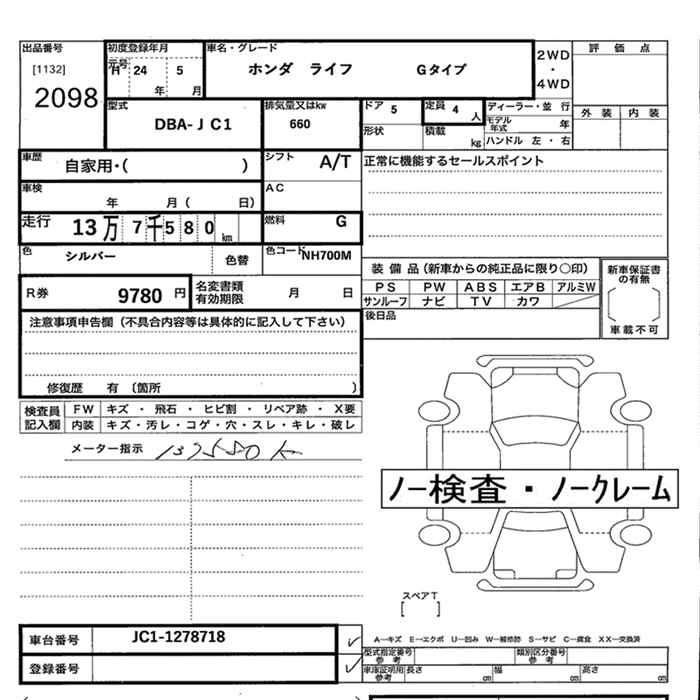 出品番号
[1132]
2098
初度登録年月
元号 H 24 5
年 月
車名・グレード
ホンダ ライフ Gタイプ
2WD
・
4WD
評 価 点
外 装 内 装
型式
DBA-JC1
排気量又はkw
660
ドア 5
定員 4 人
形状
積載 kg
ディーラー・並 行
モデル年式 年
ハンドル 左 ・ 右
車歴
自家用・( )
シフト A/T
正常に機能するセールスポイント
車検
年 月( 日)
AC
走行
13万7千580km
燃料 G
色
シルバー
色替
色コード NH700M
装 備 品(新車からの純正品に限り○印)
PS PW ABS エアB アルミW
サンルーフ ナビ TV カワ
新車保証書
の有無
車載不可
後日品
R券
9780 円
名変書類
有効期限
月 日
注意事項申告欄(不具合内容等は具体的に記入して下さい)
修復歴 有(箇所 )
検査員
記入欄
FW キズ ・ 飛石 ・ ヒビ割 ・ リペア跡 ・ X要
内装 キズ・汚レ・コゲ・穴・スレ・キレ・破レ
メーター指示
ノー検査・ノークレーム
スペアT
[ ]
A―キズ E―エクボ U―凹み W―補修跡 S―サビ C―腐食 XX―交換済
車台番号
JC1-1278718
✓
登録番号
✓
型式指定番号
参考
類別区分番号
参考
車庫証明用
参考
長さ cm
幅 cm
高さ cm